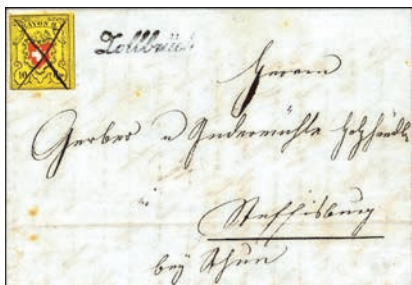 RAYON II
10
Zollbrück
Herren
Gerber u Indermühle Holzhändler
Steffisburg
bey Thun